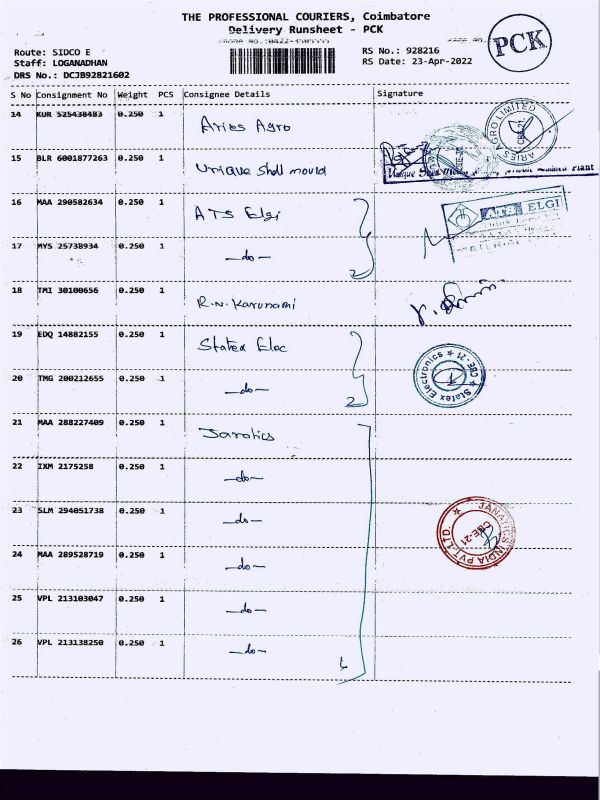 THE PROFESSIONAL COURIERS, Coimbatore
Delivery Runsheet - PCK
PCK
Route: SIDCO E
Staff: LOGANADHAN
DRS No.: DCJB92821602
RS No.: 928216
RS Date: 23-Apr-2022
S No Consignment No Weight PCS Consignee Details Signature
14 KUR 525438483 0.250 1 Aries Agro
ARIES AGRO LIMITED
CBE-21
15 BLR 6001877263 0.250 1 Unique Shell mould
16 MAA 290582634 0.250 1 ATS Elgi
ELGI
17 MYS 25738934 0.250 1 —do—
2
18 TMI 30100656 0.250 1 R.N. Karunami
19 EDQ 14882155 0.250 1 Statex Elec
Statex Electronics ★ CBE-21 ★
20 TMG 200212655 0.250 1 —do—
2
21 MAA 288227409 0.250 1 Janatics
22 IXM 2175258 0.250 1 —do—
23 SLM 294051738 0.250 1 —do—
JANATICS INDIA PVT.LTD. ★
CBE-21
24 MAA 289528719 0.250 1 —do—
25 VPL 213103047 0.250 1 —do—
26 VPL 213138250 0.250 1 —do—
6